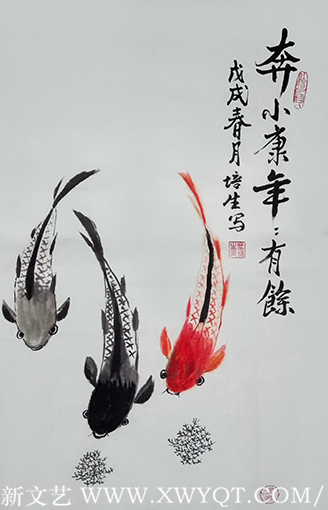 奔小康年:有餘
戊戌春月培生写
新文艺 WWW.XWYQT.COM/